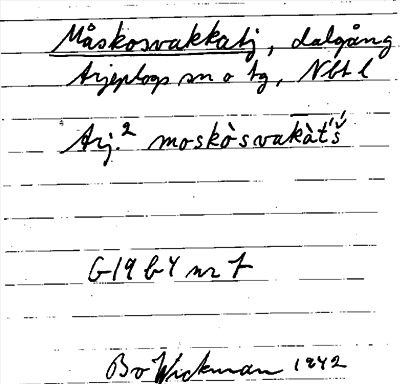 Måskosvakkatj, dalgång
Arjeplogs sn o tg, Nbt l
Arj.² moskòsvakàt́š
G19 b4 nr 7
Bo Wickman 1942